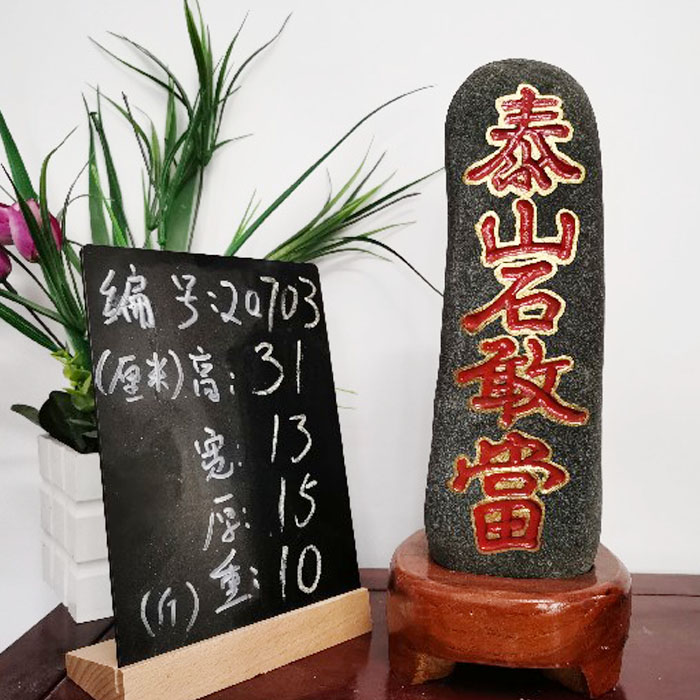 编号:20703
(厘米)高: 31
宽: 13
厚: 15
(斤)重: 10
泰山石敢當